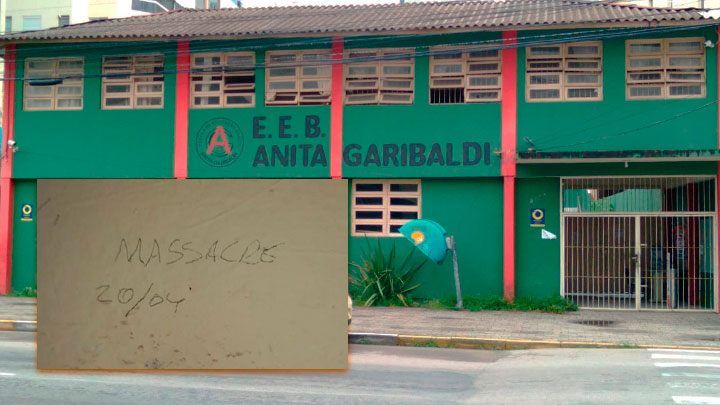 E. E. B.
A ANITA GARIBALDI
MASSACRE
20/04